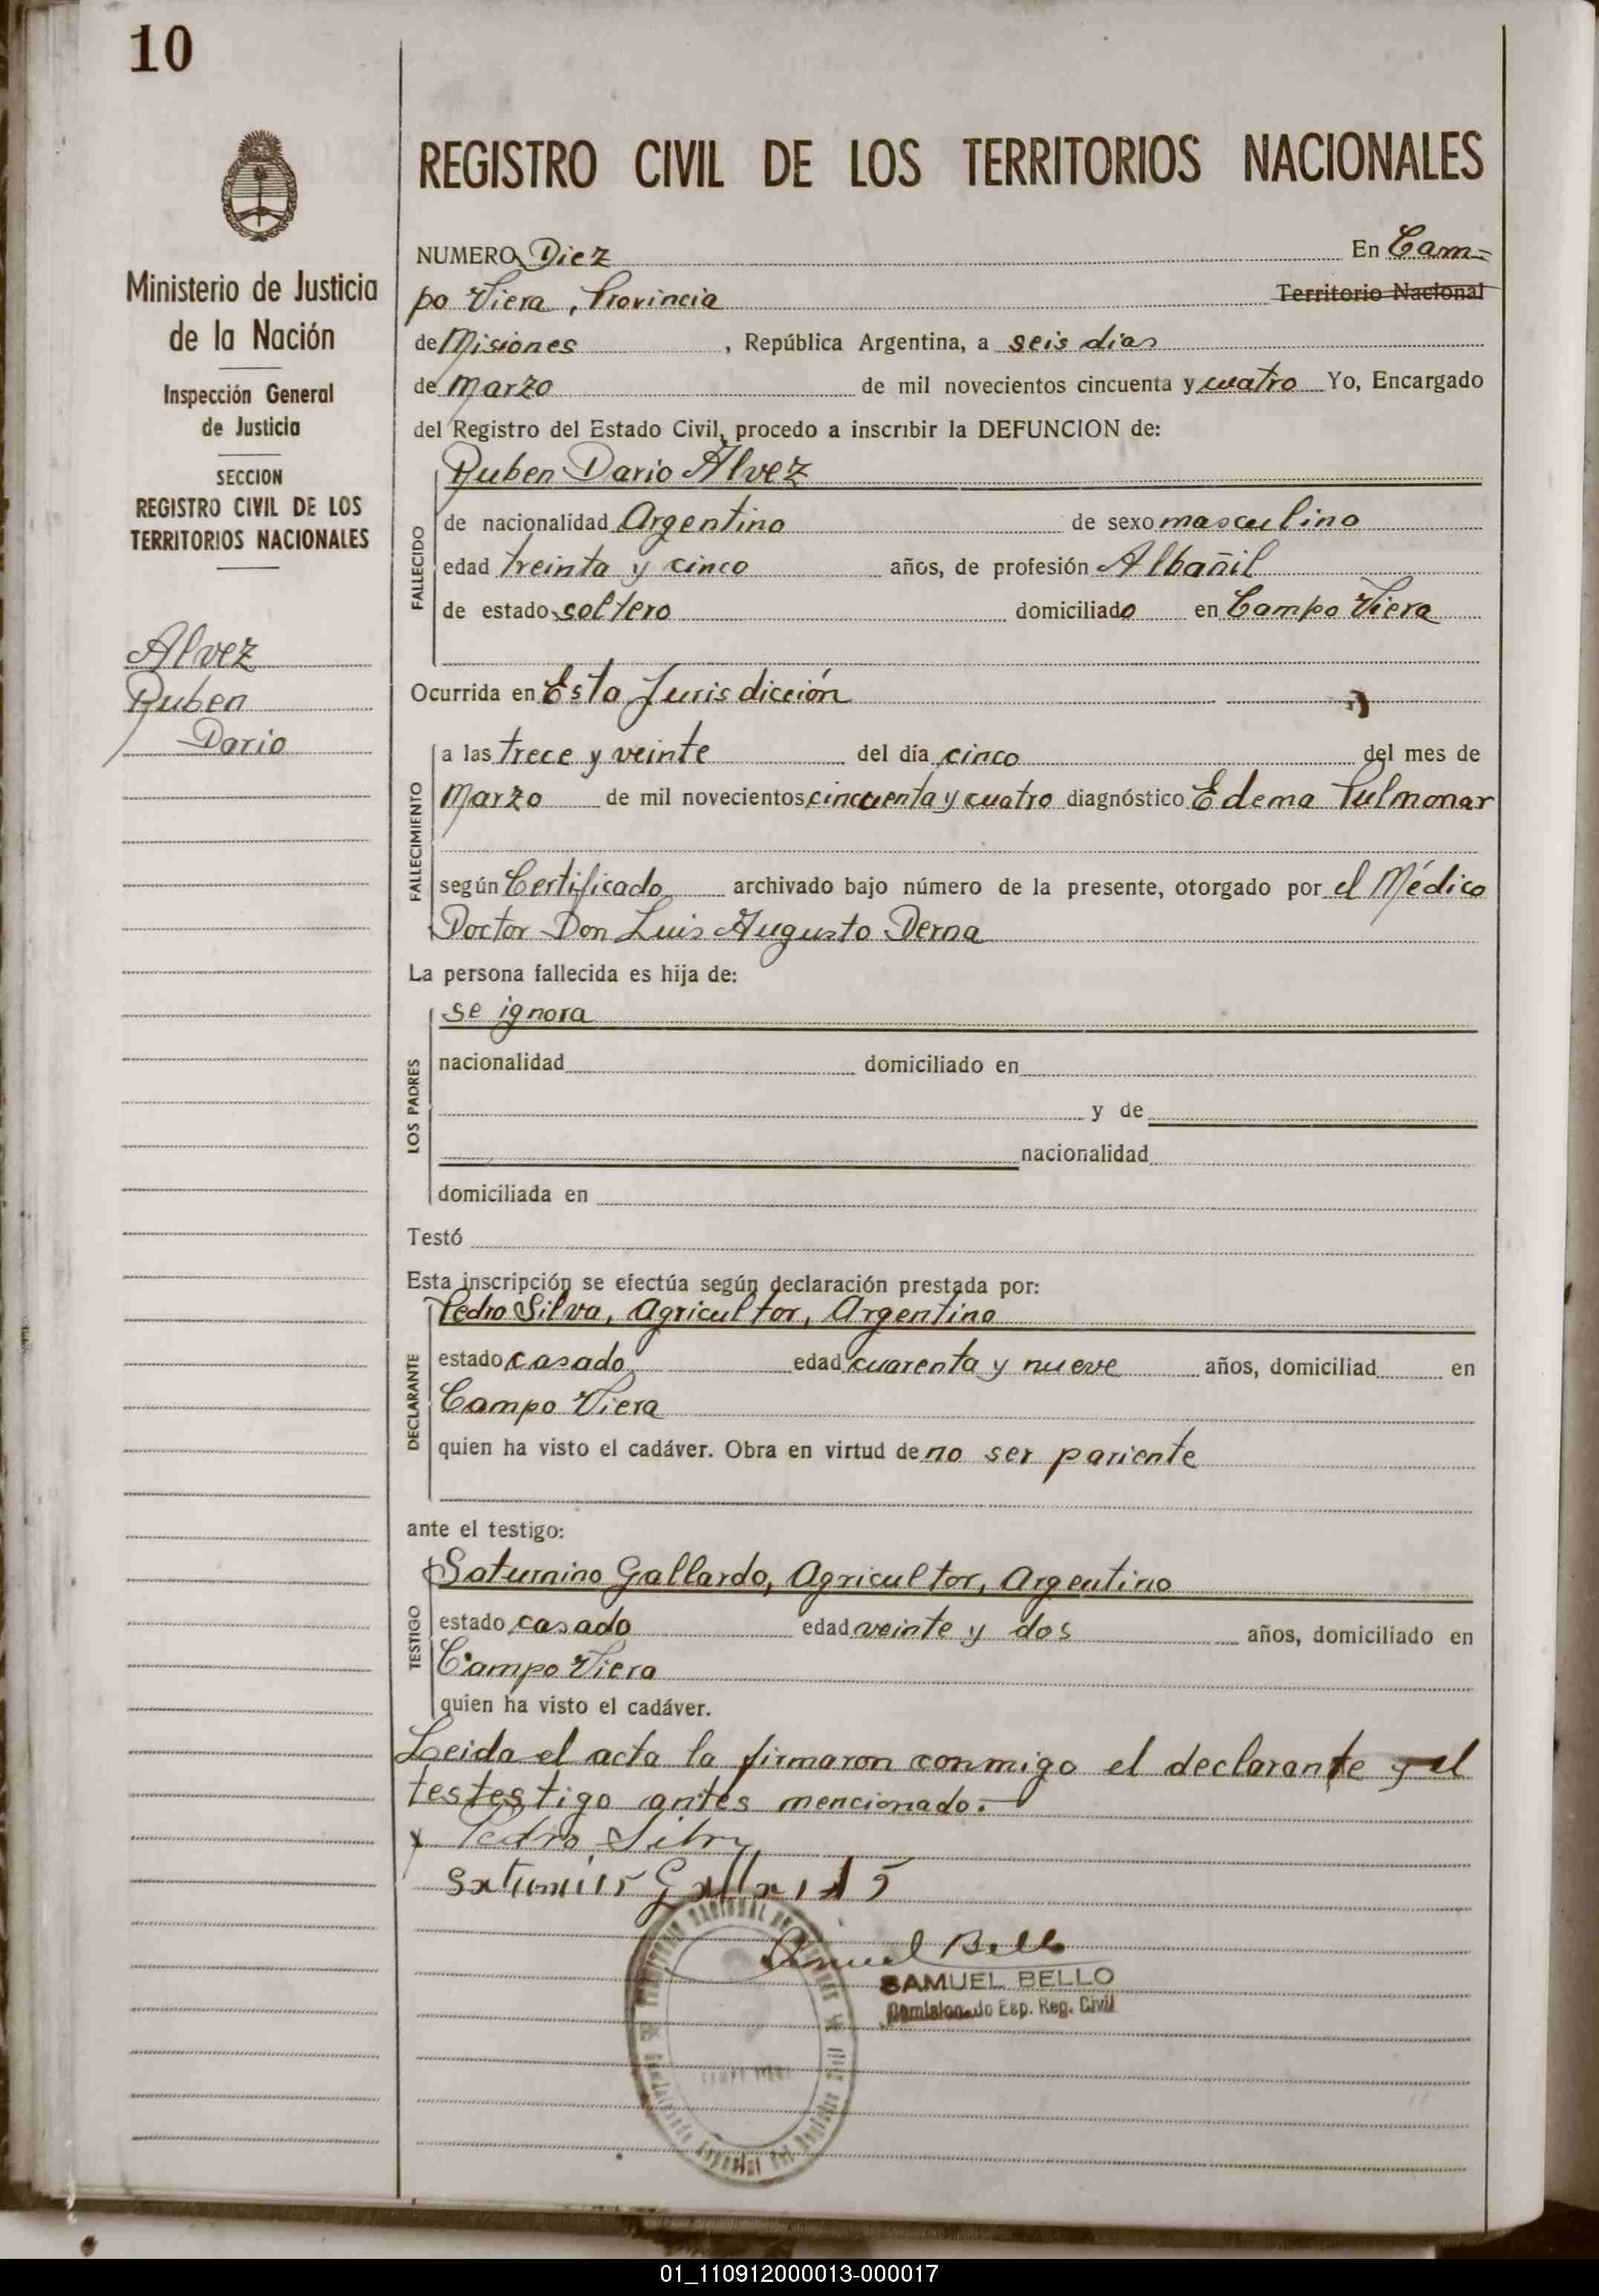 10
Ministerio de Justicia
de la Nación
Inspección General
de Justicia
SECCION
REGISTRO CIVIL DE LOS
TERRITORIOS NACIONALES
Alvez
Ruben
Dario
REGISTRO CIVIL DE LOS TERRITORIOS NACIONALES
NUMERO Diez En Cam=
po Viera, Provincia Territorio Nacional
de Misiones, República Argentina, a seis dias
de Marzo de mil novecientos cincuenta y cuatro Yo, Encargado
del Registro del Estado Civil, procedo a inscribir la DEFUNCION de:
Ruben Dario Alvez
FALLECIDO
de nacionalidad Argentino de sexo masculino
edad treinta y cinco años, de profesión Albañil
de estado soltero domiciliado en Campo Viera
Ocurrida en Esta Jurisdicción
FALLECIMIENTO
a las trece y veinte del día cinco del mes de
Marzo de mil novecientos cincuenta y cuatro diagnóstico Edema Pulmonar
según Certificado archivado bajo número de la presente, otorgado por el Médico
Doctor Don Luis Augusto Derna
La persona fallecida es hija de:
LOS PADRES
se ignora
nacionalidad domiciliado en
y de
nacionalidad
domiciliada en
Testó
Esta inscripción se efectúa según declaración prestada por:
DECLARANTE
Pedro Silva, Agricultor, Argentino
estado casado edad cuarenta y nueve años, domiciliad en
Campo Viera
quien ha visto el cadáver. Obra en virtud de no ser pariente
ante el testigo:
TESTIGO
Saturnino Gallardo, Agricultor, Argentino
estado casado edad veinte y dos años, domiciliado en
Campo Viera
quien ha visto el cadáver.
Leida el acta la firmaron conmigo el declarante y el
testestigo antes mencionado.-
x Pedro Silva
Samuel Bello
SAMUEL BELLO
Comisionado Esp. Reg. Civil
01_110912000013-000017